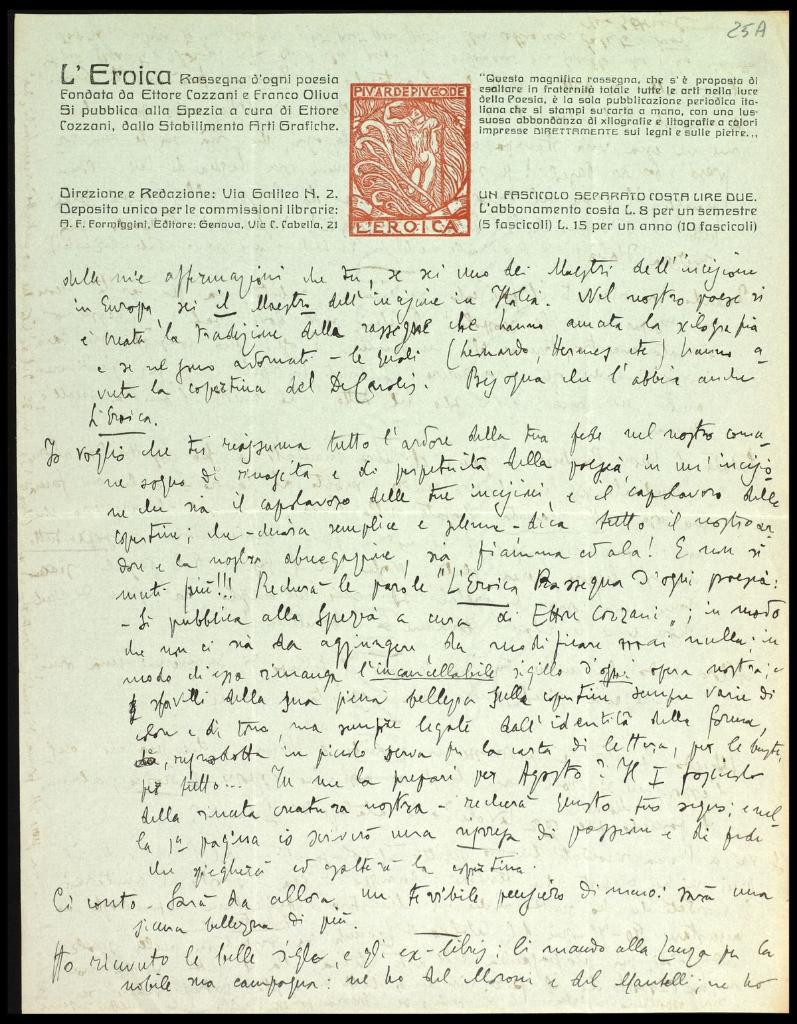 25A
L'Eroica Rassegna d'ogni poesia
Fondata da Ettore Cozzani e Franco Oliva
Si pubblica alla Spezia a cura di Ettore
Cozzani, dallo Stabilimento Arti Grafiche.
Direzione e Redazione: Via Galileo N. 2.
Deposito unico per le commissioni librarie:
A. F. Formiggini, Editore: Genova, Via C. Cabella, 21
PIVARDEPIVGODE
L'EROICA
"Questa magnifica rassegna, che s'è proposta di
esaltare in fraternità totale tutte le arti nella luce
della Poesia, è la sola pubblicazione periodica ita-
liana che si stampi su carta a mano, con una lus-
suosa abbondanza di xilografie e litografie a colori
impresse DIRETTAMENTE sui legni e sulle pietre...
UN FASCICOLO SEPARATO COSTA LIRE DUE.
L'abbonamento costa L. 8 per un semestre
(5 fascicoli) L. 15 per un anno (10 fascicoli)
delle mie affermazioni che tu, se sei uno dei Maestri dell'incisione
in Europa, sei il Maestro dell'incisione in Italia. Nel nostro paese si
è creata la tradizione delle rassegne che hanno amata la xilografia
e se ne sono adornate - le quali (Leonardo, Hermes etc) hanno a-
vuta la copertina del DeCarolis. Bisogna che l'abbia anche
L'Eroica.
Io voglio che tu riassuma tutto l'ardore della tua fede nel nostro comu-
ne sogno di rinascita e di perpetuità della poesia, in un'incisio-
ne che sia il capolavoro delle tue incisioni, e il capolavoro delle
copertine; che - chiara semplice e - dica tutto il nostro ar-
dore e la nostra abnegazione, sia fiamma ed ala! E non si
muti più!!! Recherà le parole "L'Eroica Rassegna d'ogni poesia:
- Si pubblica alla Spezia a cura di Ettore Cozzani"; in modo
che non ci sia da aggiungere, da modificare mai nulla; in
modo ch'essa rimanga l'incancellabile sigillo d'ogni opera nostra; e
sfavilli della sua piena bellezza sulle copertine sempre varie di
e di tono, ma sempre legate dall'identità della forma,
riprodotta in piccolo serva per la carta di lettera, per le buste,
per tutto... Tu me la prepari per Agosto? Il I fascicolo
della rinata creatura nostra - recherà questo tuo segno; e nel-
la 1ª pagina io scriverò una ripresa di passione e di fede
che spiegherà ed esalterà la copertina.
Ci conto. Sarà da allora un terribile pensiero di meno: sarà una
sicura bellezza di più.
Ho ricevuto le belle sigle, e gli ex-libris; li mando alla Lanza per la
nobile sua campagna: ne ho del Moroni e del Mantelli; ne ho